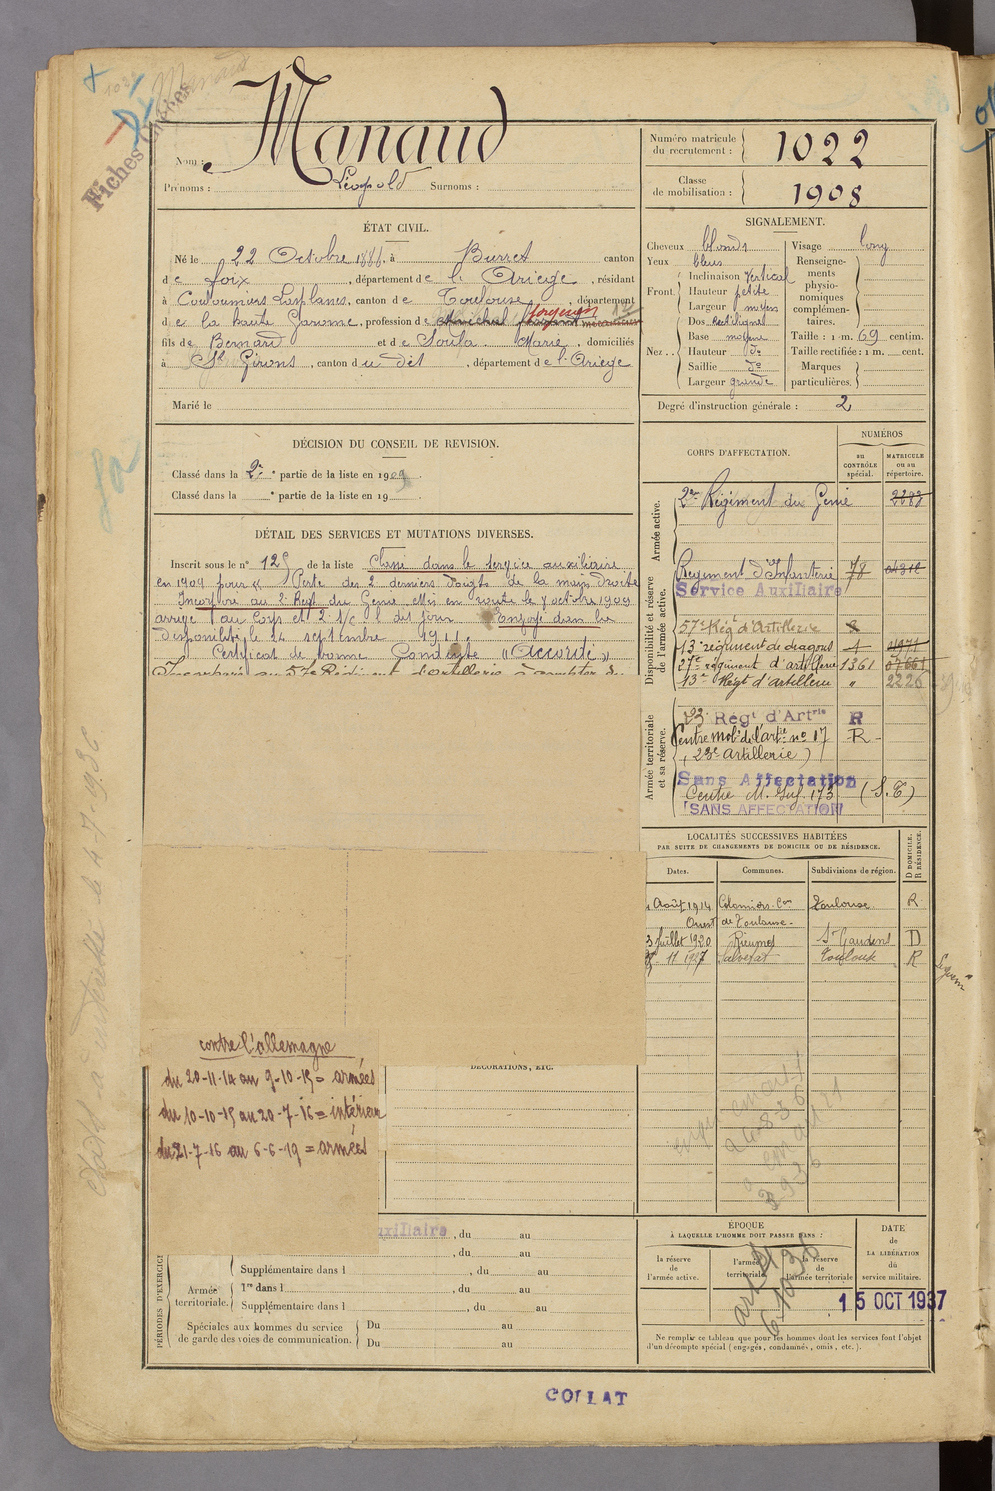 Fiches
Manaud
Nom :
Prénoms : Léopold Surnoms :
Numéro matricule
du recrutement : 1022
Classe
de mobilisation : 1908
ÉTAT CIVIL.
Né le 22 Octobre 1886, à Burret canton
de Foix, département de l'Ariège, résidant
à Couloumiers Lasplanes, canton de Toulouse, département
de la haute Garonne, profession de forgeron
fils de Bernard et de Soula Marie, domiciliés
à St Girons, canton du dit, département de l'Ariège
Marié le
SIGNALEMENT.
Cheveux blonds
Yeux bleus
Front. Inclinaison Vertical
Hauteur petite
Largeur moyen
Nez .. Dos Rectiligne
Base moyenne
Hauteur do
Saillie do
Largeur grande
Visage long
Renseigne-
ments
physio-
nomiques
complémen-
taires.
Taille : 1 m. 69 centim.
Taille rectifiée : 1 m. cent.
Marques
particulières.
Degré d'instruction générale : 2
DÉCISION DU CONSEIL DE REVISION.
Classé dans la 2e partie de la liste en 1909.
Classé dans la e partie de la liste en 19 .
DÉTAIL DES SERVICES ET MUTATIONS DIVERSES.
Inscrit sous le n° 125 de la liste Classé dans le service auxiliaire
en 1909 pour « Perte des 2 derniers doigts de la main droite
Incorporé au 2e Régt du Génie Mis en route le 7 octobre 1909
arrivé au Corps et 2e S/c le dit jour Envoyé dans la
disponibilité le 24 septembre 1911.
Certificat de bonne Conduite « Accordé »
Incorporé au 57e Régiment d'Artillerie à compter du
CORPS D'AFFECTATION.
NUMÉROS
au
CONTRÔLE
spécial.
MATRICULE
ou au
répertoire.
Armée active.
2e Régiment du Génie 2283
Disponibilité et réserve
de l'armée active.
Régiment d'Infanterie 78
Service Auxiliaire
57e Rég't d'Artillerie
13e régiment de dragons
27e régiment d'artillerie 1361
13e Régt d'artillerie " 2226
Armée territoriale
et sa réserve.
23 Régt d'Artrie R
Centre mobe de l'artie n° 17 R
(23e Artillerie)
Sans Affectation
Centre M. Inf. 173 (S.E)
SANS AFFECTATION
LOCALITÉS SUCCESSIVES HABITÉES
PAR SUITE DE CHANGEMENTS DE DOMICILE OU DE RÉSIDENCE.
Dates. Communes. Subdivisions de région. D DOMICILE. R RÉSIDENCE.
Août 1914 Colomiers Con Toulouse R
Ouest de Toulouse
3 Juillet 1920 Rieumes St Gaudens D
11 1927 Salvetat Toulouse R
contre l'allemagne
du 20-11-14 au 9-10-15 = armées
du 10-10-15 au 20-7-16 = intérieur
du 21-7-16 au 6-6-19 = armées
DÉCORATIONS, ETC.
PÉRIODES D'EXERCICE
uxiliaire , du au
, du au
Armée
territoriale.
Supplémentaire dans l , du au
1re dans l , du au
Supplémentaire dans l , du au
Spéciales aux hommes du service
de garde des voies de communication.
Du au
Du au
ÉPOQUE
À LAQUELLE L'HOMME DOIT PASSER DANS :
la réserve
de
l'armée active.
l'armée
territoriale.
la réserve
de
l'armée territoriale
DATE
de
LA LIBÉRATION
du
service militaire.
15 OCT 1937
Ne remplir ce tableau que pour les hommes dont les services font l'objet
d'un décompte spécial (engagés, condamnés, omis, etc.).
COLLAT